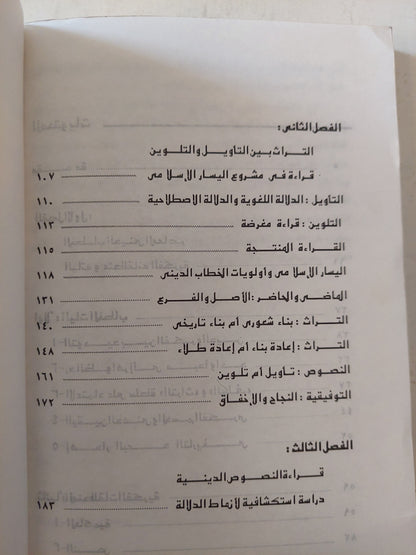 الفصل الثانى :
التراث بين التأويل والتلوين
قراءة فى مشروع اليسار الإسلامى ........ ١٠٧
التأويل : الدلالة اللغوية والدلالة الاصطلاحية ........ ١١٠
التلوين : قراءة مغرضة ........ ١١٣
القراءة المنتجة ........ ١١٥
اليسار الإسلامى وأولويات الخطاب الدينى ........ ١١٨
الماضى والحاضر : الأصل والفرع ........ ١٣١
التراث : بناء شعورى أم بناء تاريخى ........ ١٤٠
التراث : إعادة بناء أم إعادة طلاء ........ ١٤٨
النصوص : تأويل أم تلوين ........ ١٦١
التوفيقية : النجاح والإخفاق ........ ١٧٢
الفصل الثالث :
قراءة النصوص الدينية
دراسة استكشافية لأنماط الدلالة ........ ١٨٣